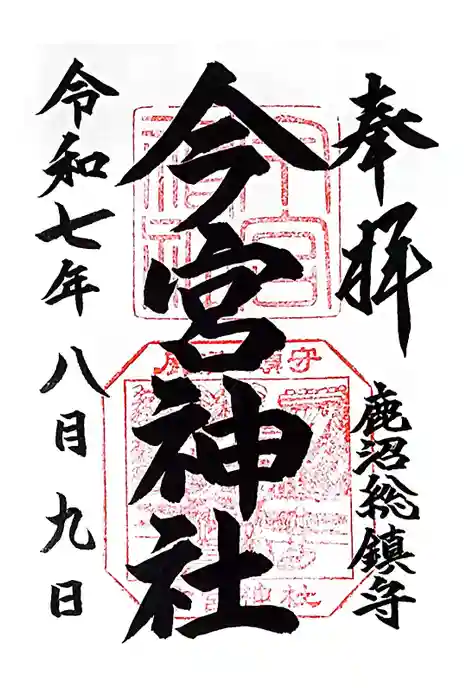 奉拝
鹿沼総鎮守
今宮神社
令和七年 八月 九日